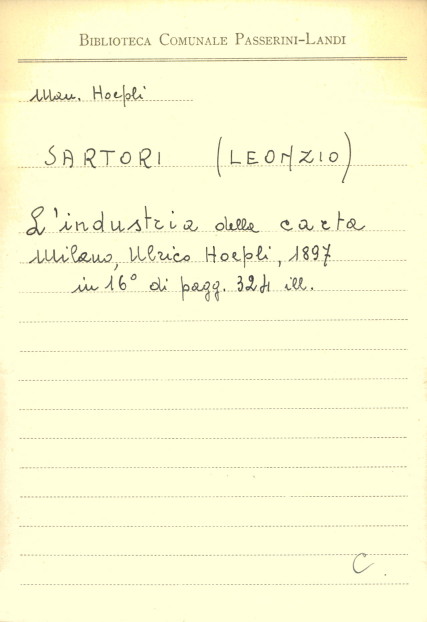 BIBLIOTECA COMUNALE PASSERINI-LANDI
Man. Hoepli
SARTORI (LEONZIO)
L'industria della carta
Milano, Ulrico Hoepli, 1897
in 16° di pagg. 324 ill.
C